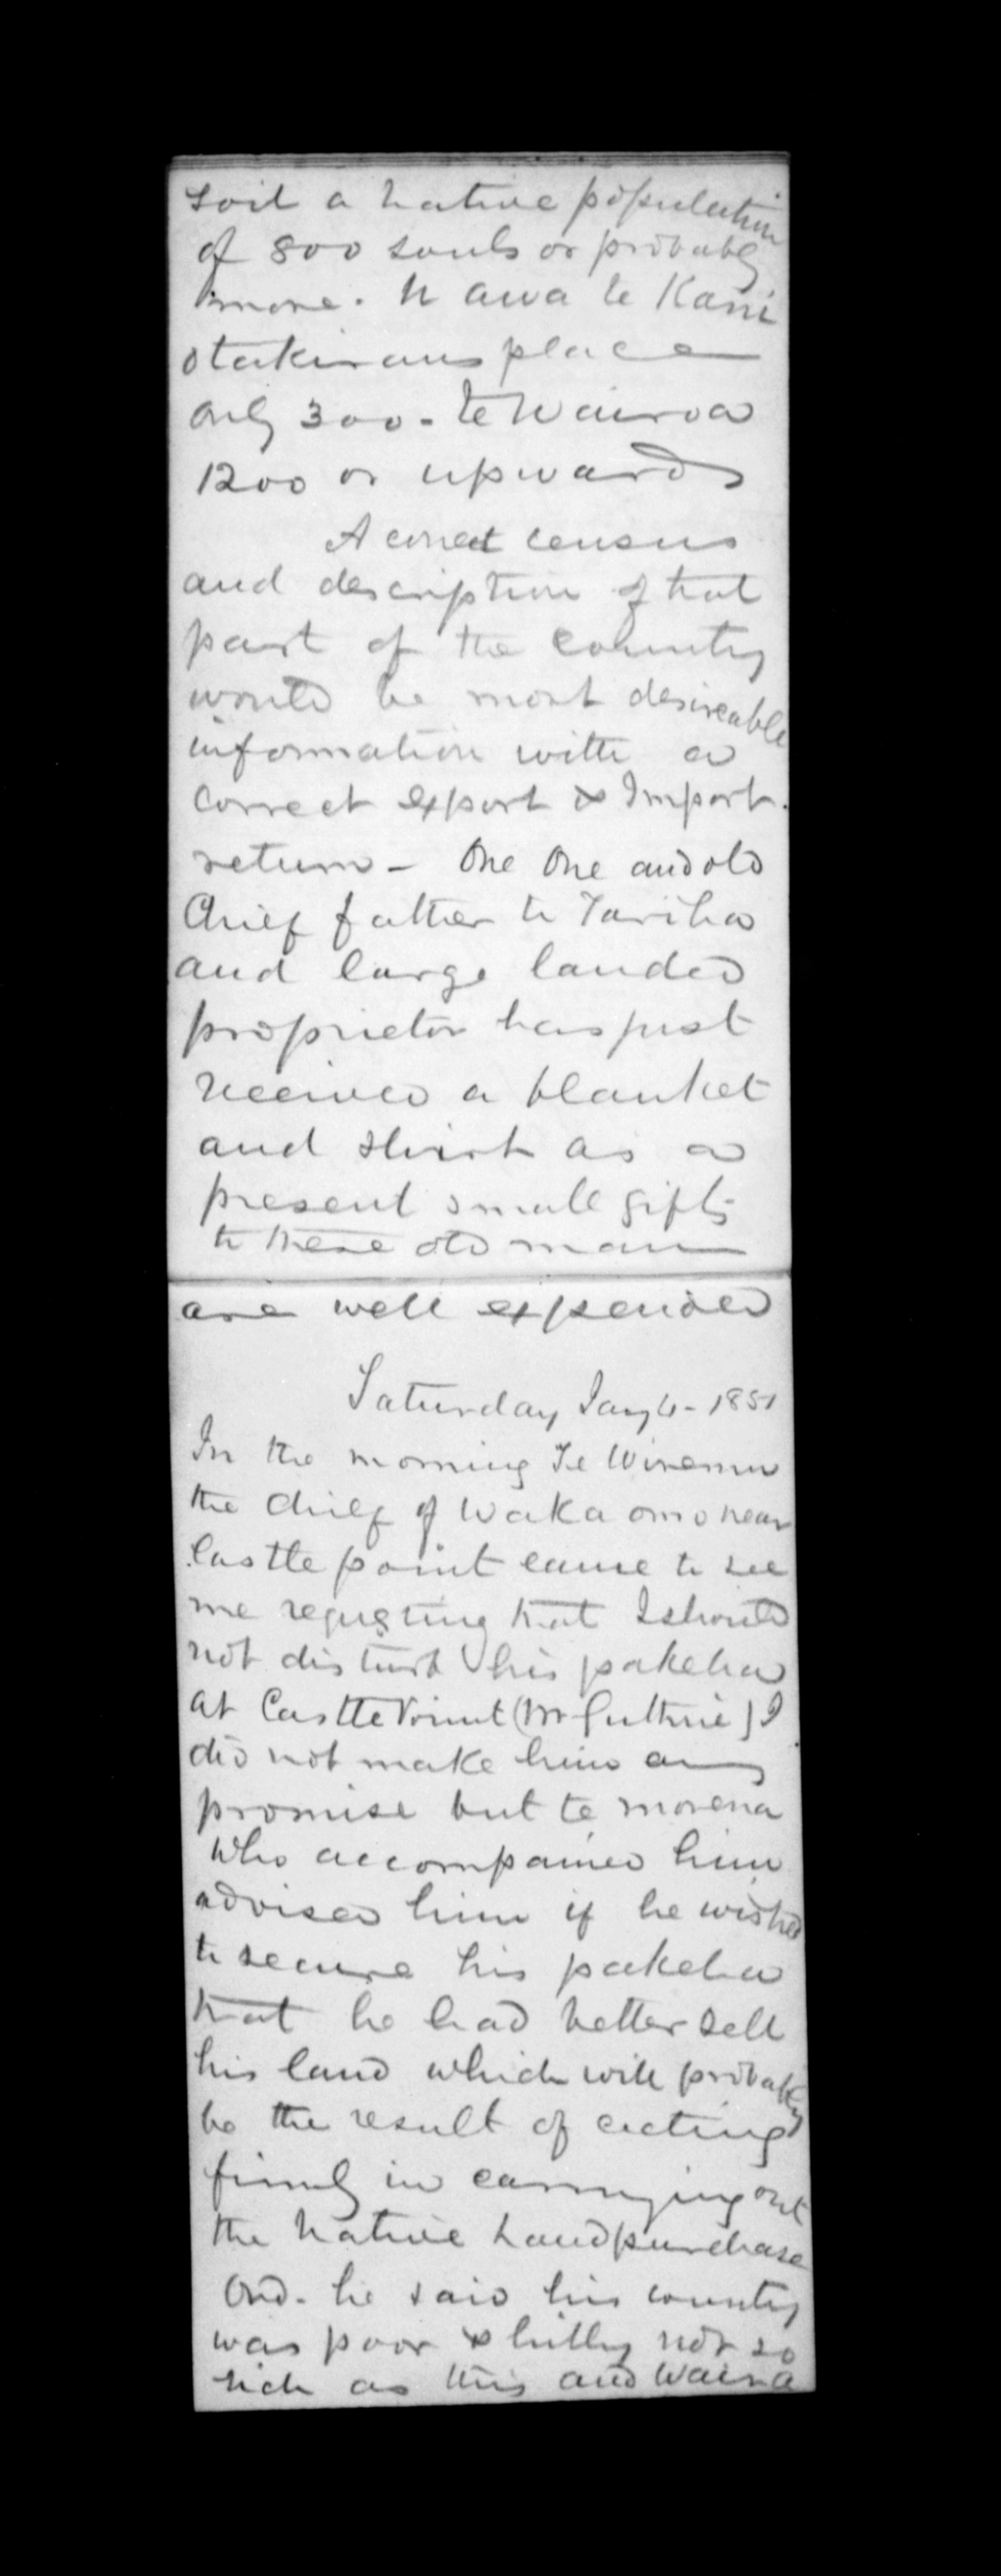 soil a native population
of 800 souls or probably
more. Uawa te Kani
otakirau's place
only 300 - te Wairoa
1200 or upwards
A correct census
and description of that
part of the country
would be most desireable
information with a
correct export & Import.
return - One One and old
Chief father to Tariha
and large landed
proprietor has just
received a blanket
and shirt as a
present small gifts
to these old man
are well expended
Saturday Jany 4 - 1851
In the morning Te Wiremu
the chief of Waka omo near
Castle point came to see
me requesting that I should
not disturb his pakeha
at Castle Point (Mr Guthrie) I
did not make him any
promise but te morena
who accompanied him
advised him if he wished
to secure his pakeha
that he had better sell
his land which will probably
be the result of acting
firmly in carrying out
the Native Land purchase
Ord. he said his country
was poor & hilly not so
rich as this and Wairoa